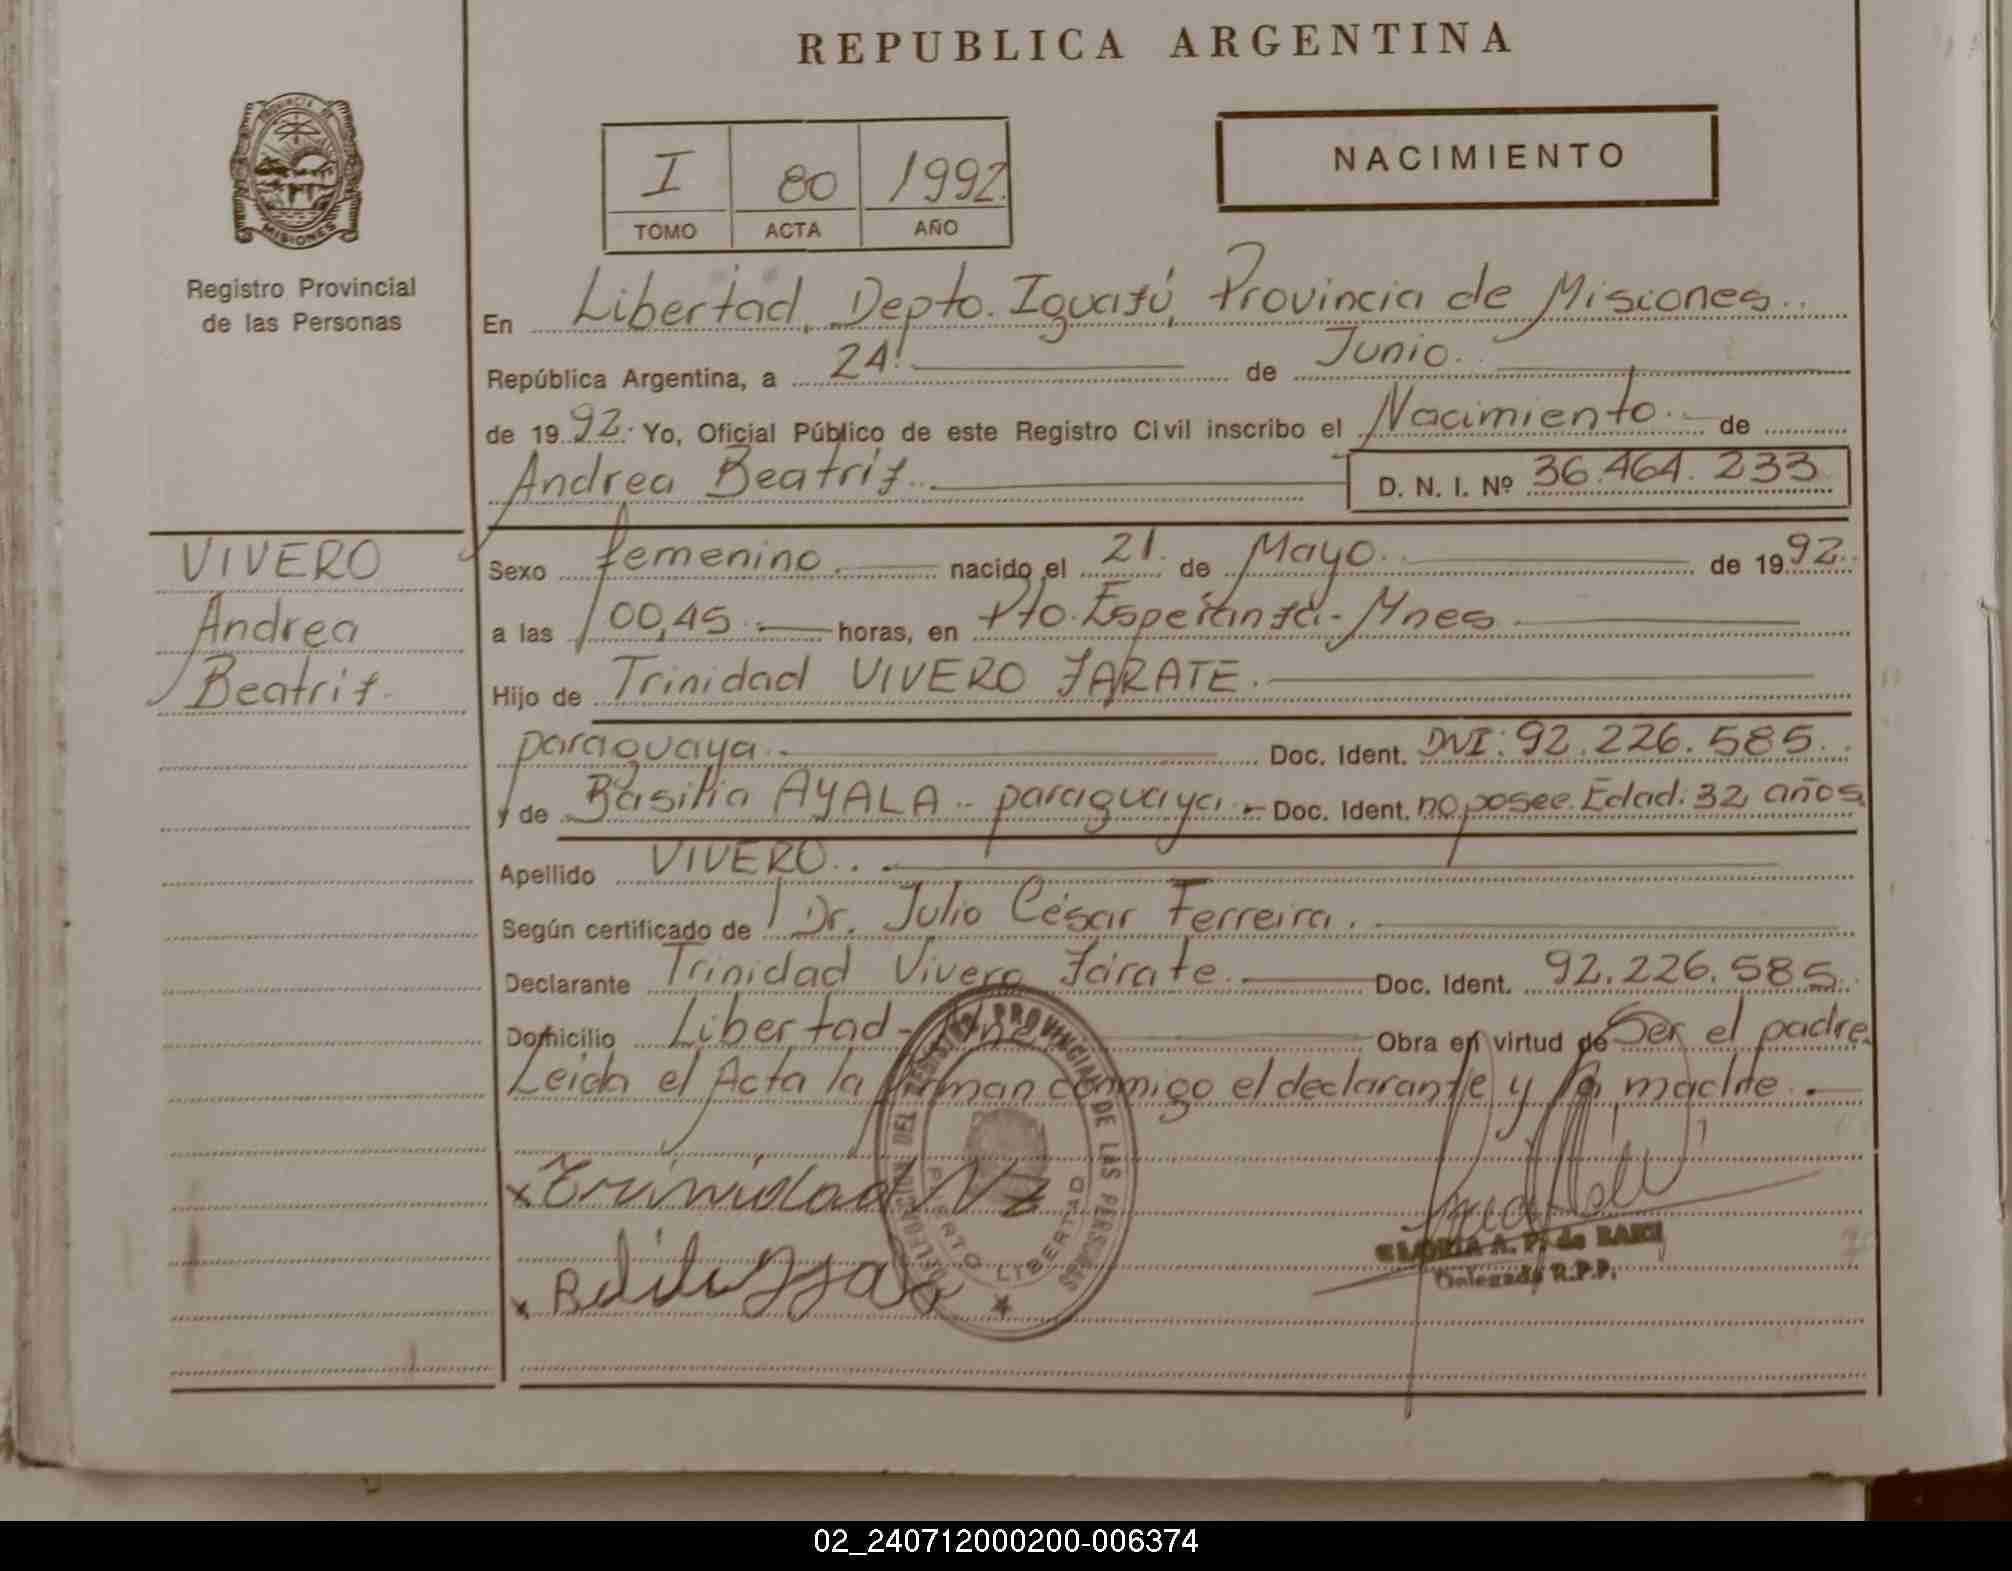 REPUBLICA ARGENTINA
PROVINCIA DE
MISIONES
Registro Provincial
de las Personas
I 80 1992.
TOMO ACTA AÑO
NACIMIENTO
En Libertad, Depto. Iguazú, Provincia de Misiones..
República Argentina, a 24. de Junio.
de 1992. Yo, Oficial Público de este Registro Civil inscribo el Nacimiento. de
Andrea Beatriz. D. N. I. Nº 36.464.233
VIVERO
Andrea
Beatriz.
Sexo femenino. nacido el 21. de Mayo. de 1992.
a las 00,45. horas, en Pto. Esperanza-Mnes
Hijo de Trinidad VIVERO ZARATE.
paraguaya. Doc. Ident. DNI: 92.226.585.
y de Basilia AYALA - paraguaya. - Doc. Ident. no posee. Edad: 32 años.
Apellido VIVERO..
Según certificado de Dr. Julio César Ferreira.
Declarante Trinidad Vivero Zárate. Doc. Ident. 92.226.585.
Domicilio Libertad- Obra en virtud de Ser el padre.
Leida el Acta la firman conmigo el declarante y la madre.
DELEGACION DEL REGISTRO PROVINCIAL DE LAS PERSONAS
PUERTO LIBERTAD
x Trinidad Vz
x
GLORIA A. P. de
Delegada R.P.P.
02_240712000200-006374